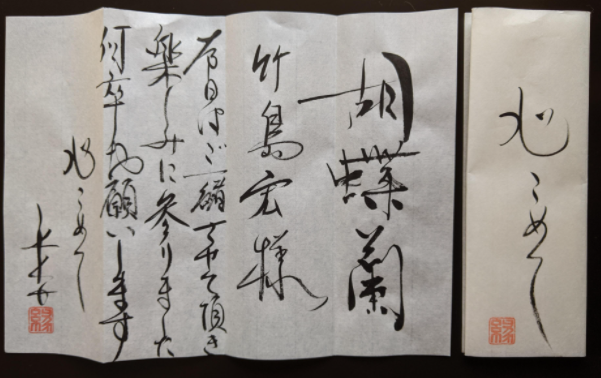 胡蝶蘭
竹島宏様
本日はご一緒させて頂き
楽しみに参りました
何卒お願いします
心こめて
心こめて